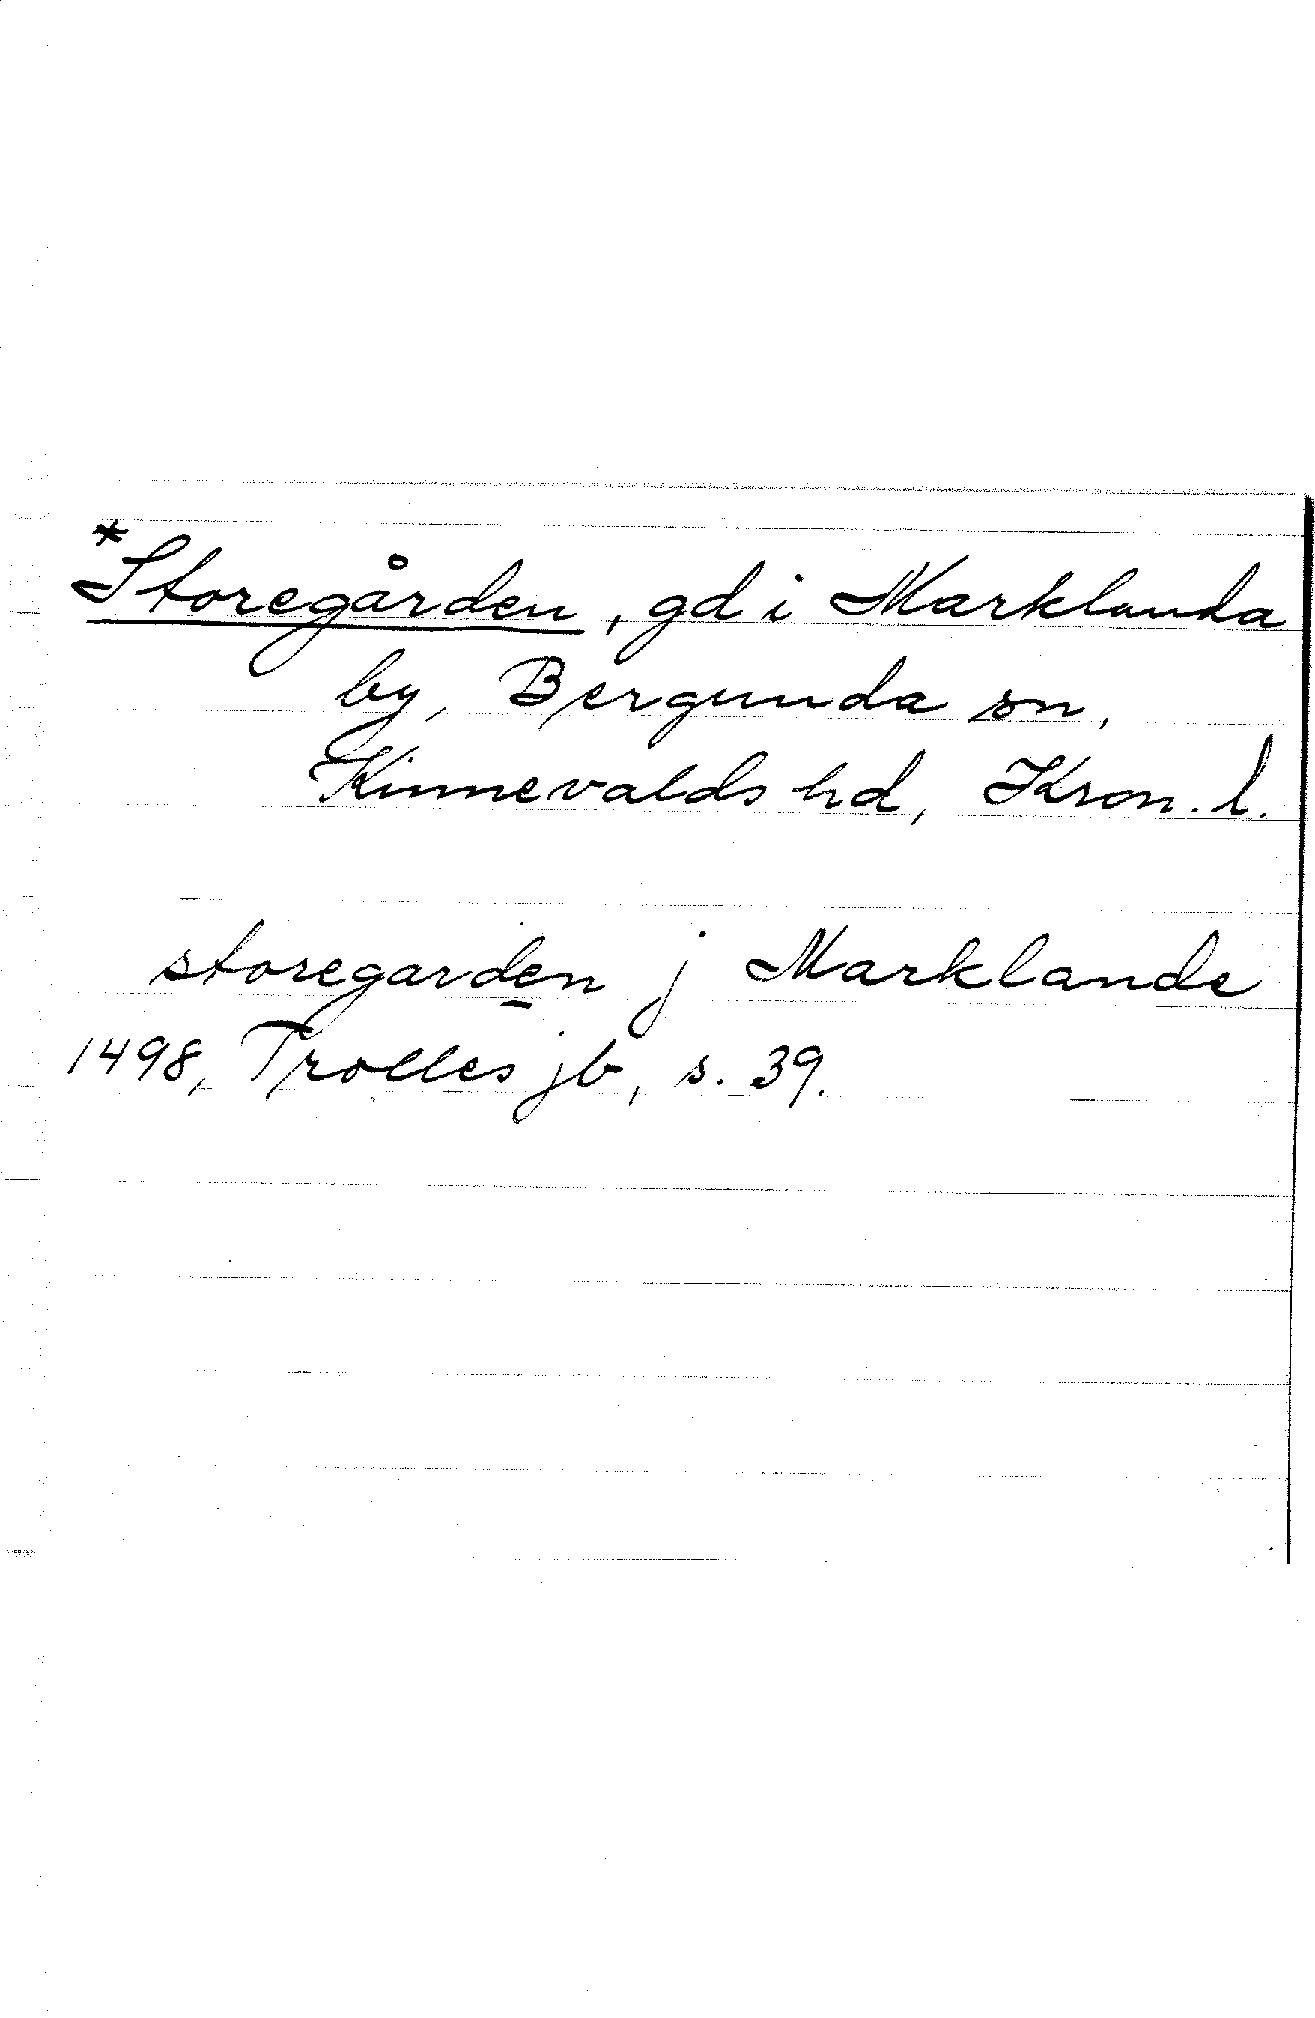 *Storegården, gd i Marklanda
by, Bergunda sn,
Kinnevalds hd, Kron. l.
storegarden j Marklande
1498, Trolles jb, s. 39.